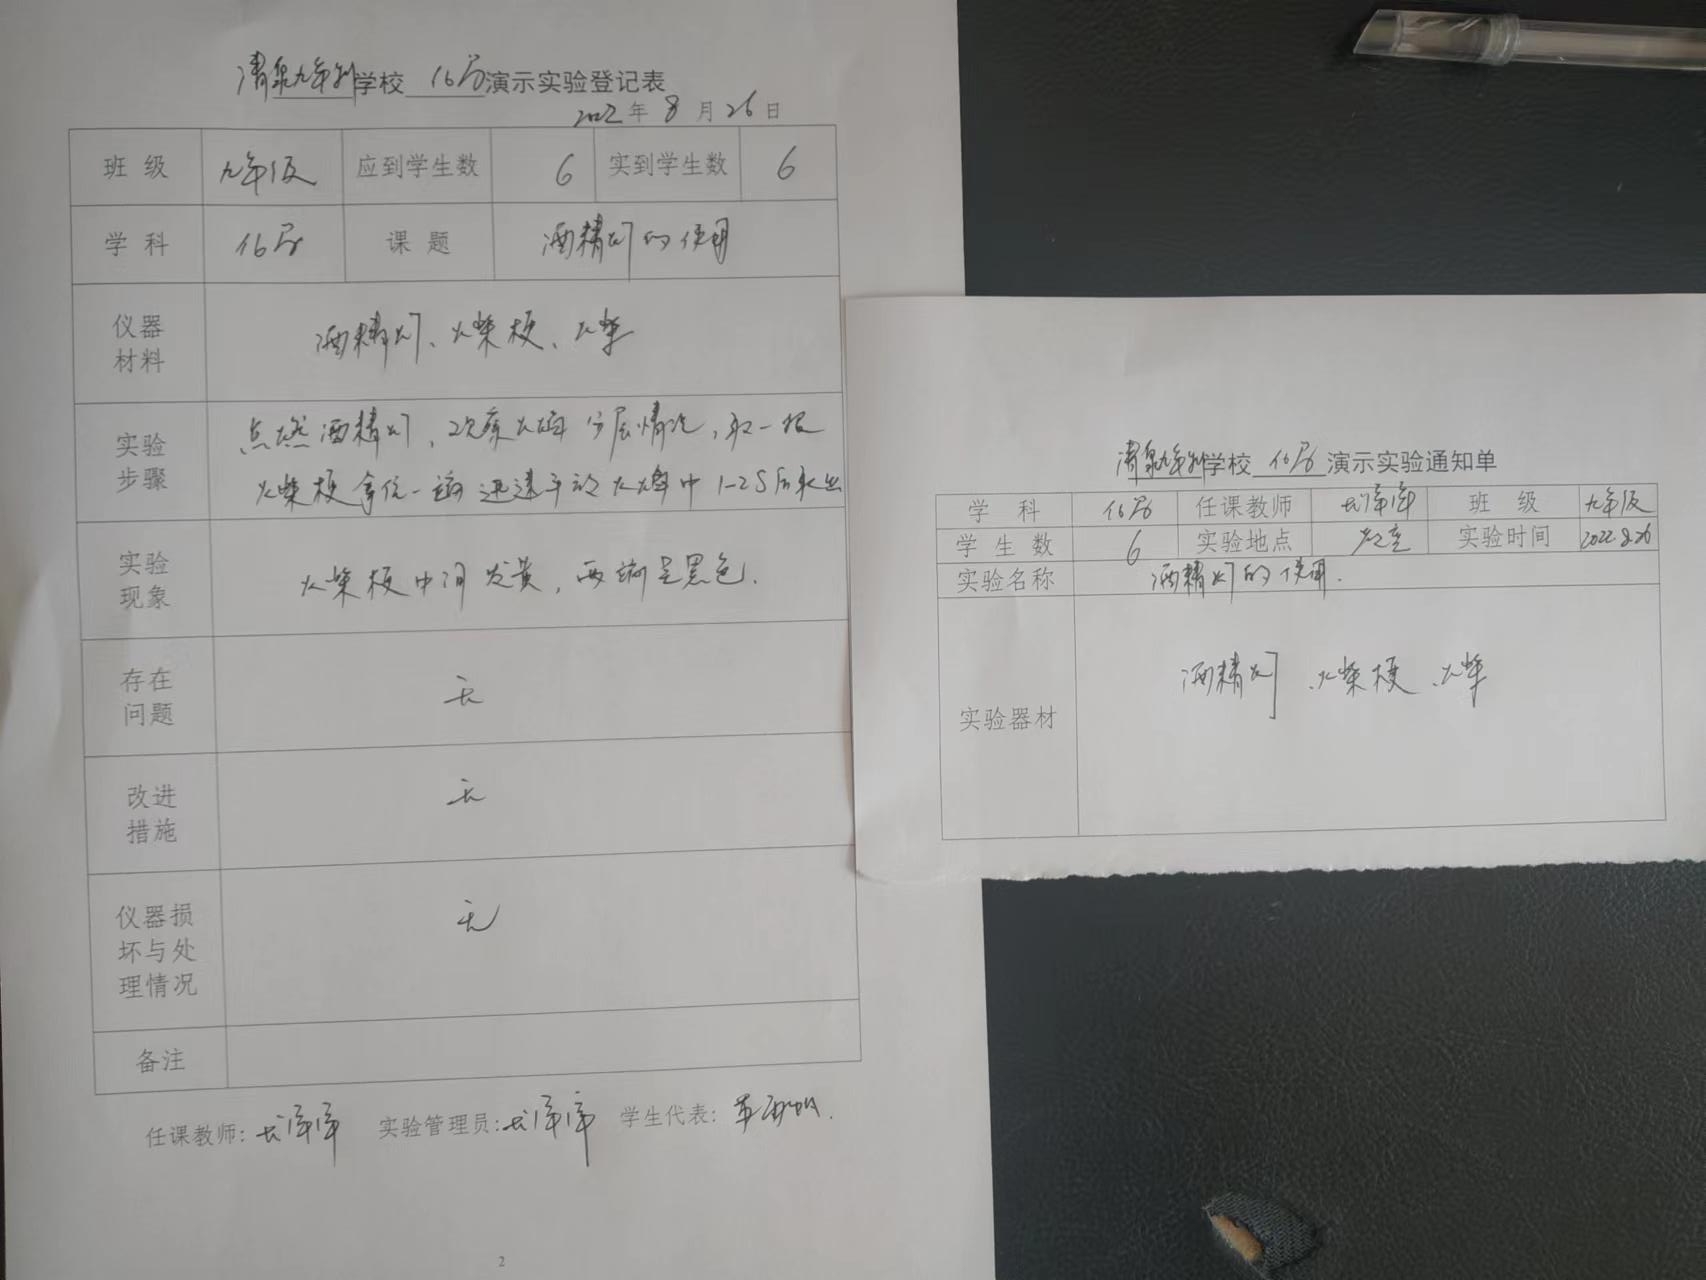 清泉九年制学校 化学 演示实验登记表
2022年8月26日
班级 九年级 应到学生数 6 实到学生数 6
学科 化学 课题 酒精灯的使用
仪器
材料
酒精灯、火柴梗、火柴
实验
步骤
点燃酒精灯,观察火焰分层情况,取一根
火柴梗拿住一端迅速平放火焰中1-2S后取出
实验
现象
火柴梗中间发黄,两端呈黑色.
存在
问题
无
改进
措施
无
仪器损
坏与处
理情况
无
备注
任课教师: 实验管理员: 学生代表:
2
清泉九年制学校 化学 演示实验通知单
学科 化学 任课教师 班级 九年级
学生数 6 实验地点 教室 实验时间 2022.8.26
实验名称 酒精灯的使用.
实验器材
酒精灯、火柴梗、火柴